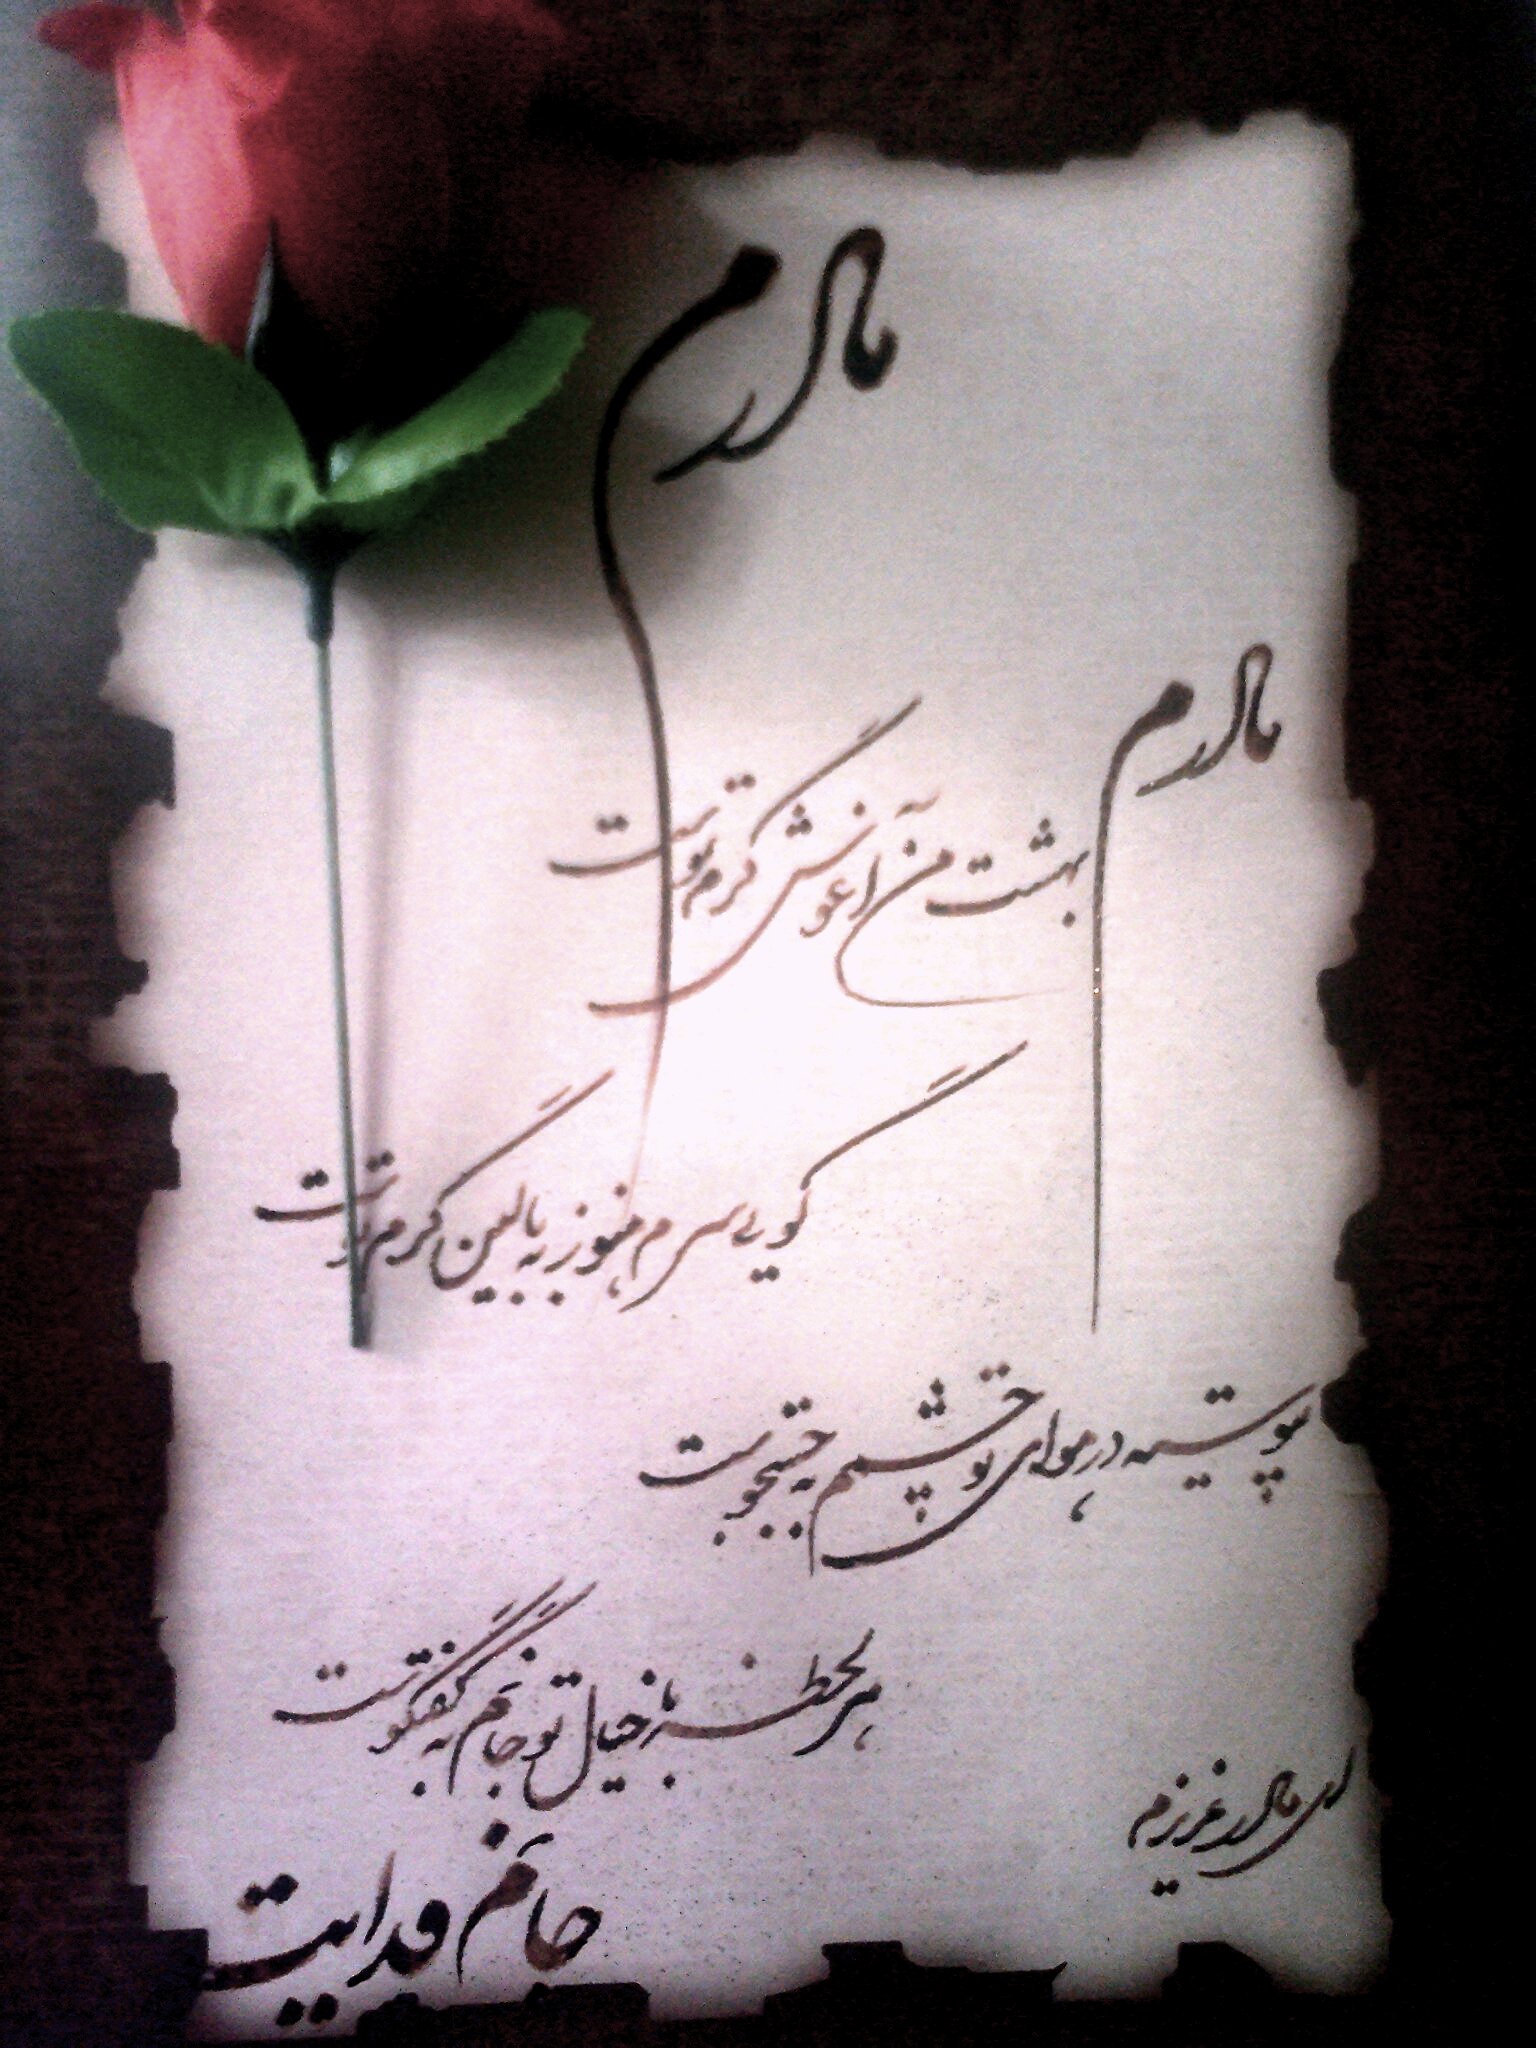 مادرم
مادرم
بهشت من آغوش گرم توست
گویی سرم هنوز به بالین گرم توست
پیوسته در هوای تو چشمم به جستجوست
هر لحظه با خیال تو جانم به گفتگوست
ای مادر عزیزم
جانم فدایت